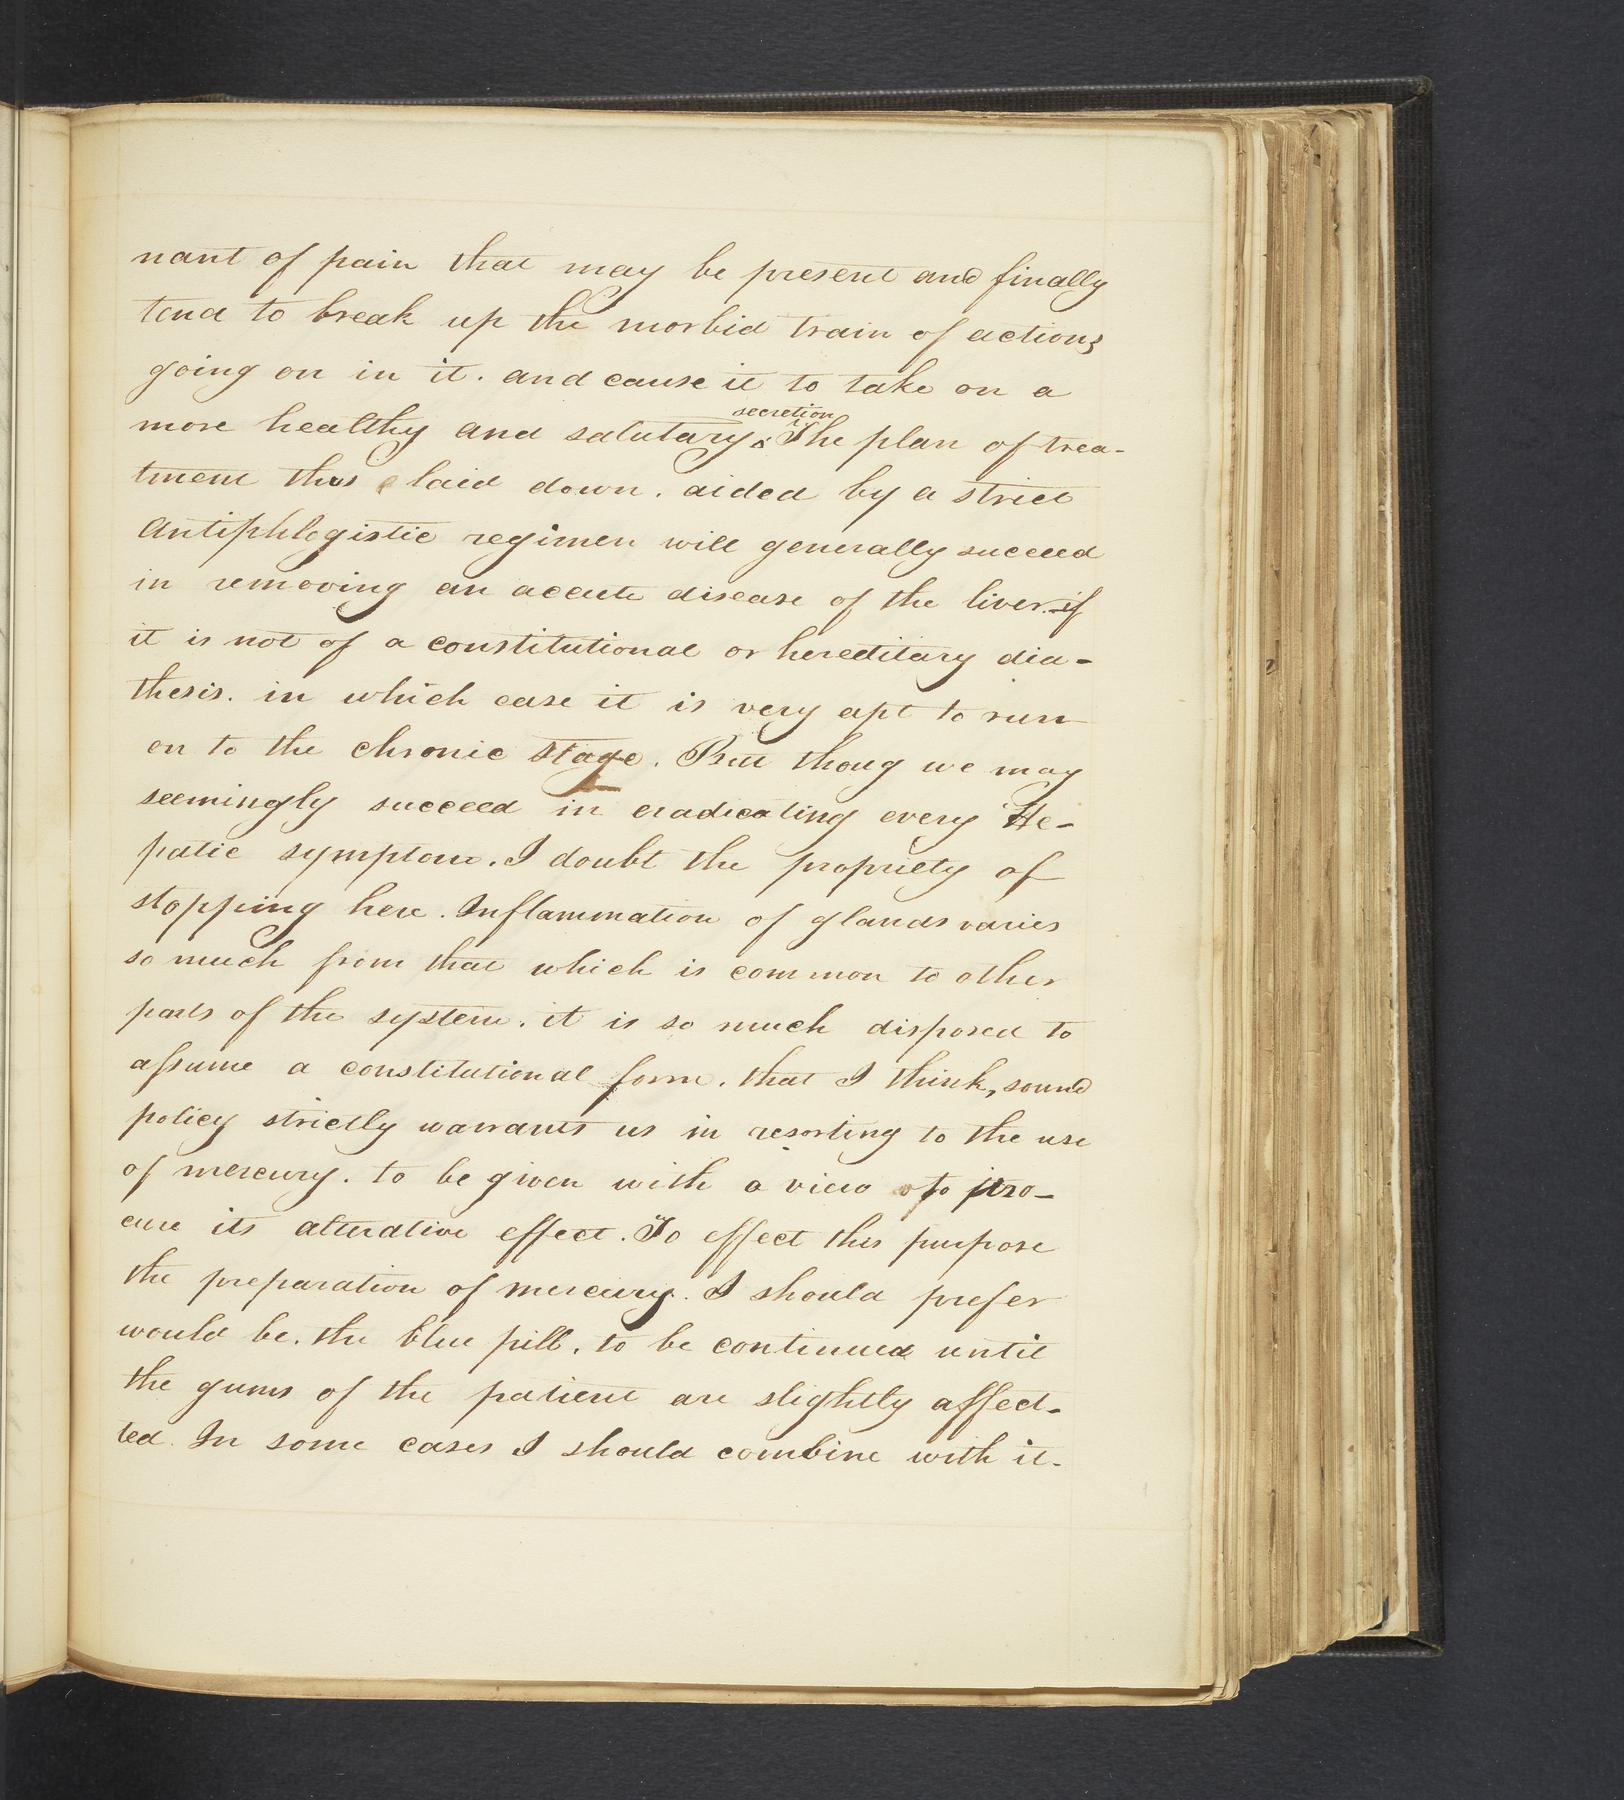 nant of pain that may be present and finally
tend to break up the morbid train of actions
going on in it. and cause it to take on a
secretion
more healthy and salutary ^. The plan of trea-
tment thus laid down. aided by a strict
antiphlogistic regimen will generally succeed
in removing an accute disease of the liver. if
it is not of a constitutional or hereditary dia-
thesis. in which case it is very apt to run
on to the chronic stage. But thoug we may
seemingly succeed in eradicating every He-
patic symptom. I doubt the propriety of
stopping here. Inflammation of glands varies
so much from that which is common to other
parts of the system. it is so much disposed to
assume a constitutional form. that I think, sound
policy strictly warrants us in resorting to the use
of mercury. to be given with a view to pro-
cure its alterative effect. To effect this purpose
the preparation of mercury. I should prefer
would be. the blue pill. to be continued until
the gums of the patient are slightly affec-
ted. In some cases I should combine with it.